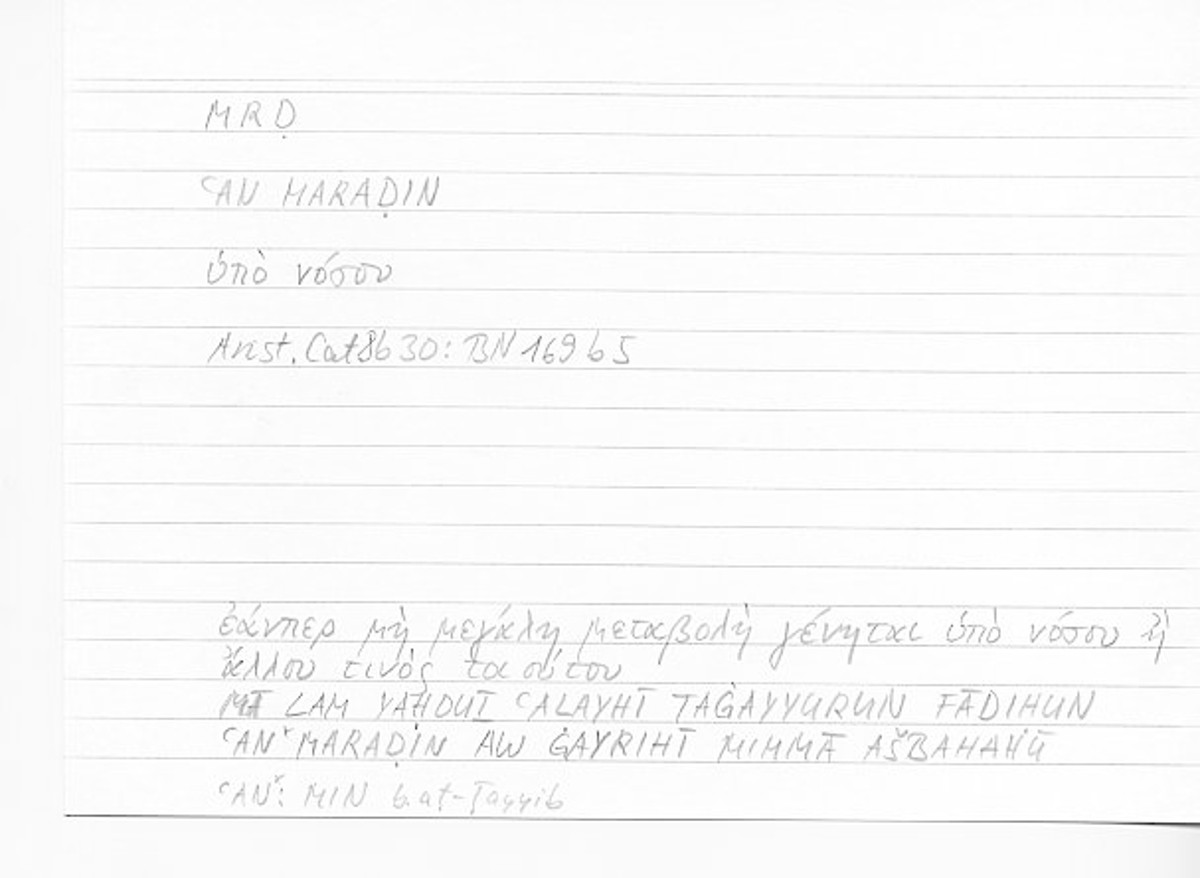 MRḌ
ʿAN MARAḌIN
ὑπὸ νόσου
Arist. Cat 8b30: BN 169 b 5
ἐάνπερ μὴ μεγάλη μεταβολὴ γένηται ὑπὸ νόσου ἢ
ἄλλου τινὸς τοιούτου
MĀ LAM YAḤDUṮ ʿALAYHĪ TAĠAYYURUN FĀDIḤUN
ʿAN* MARAḌIN AW ĠAYRIHĪ MIMMĀ AŠBAHAHŪ
ʿAN*: MIN b. aṭ-Ṭayyib